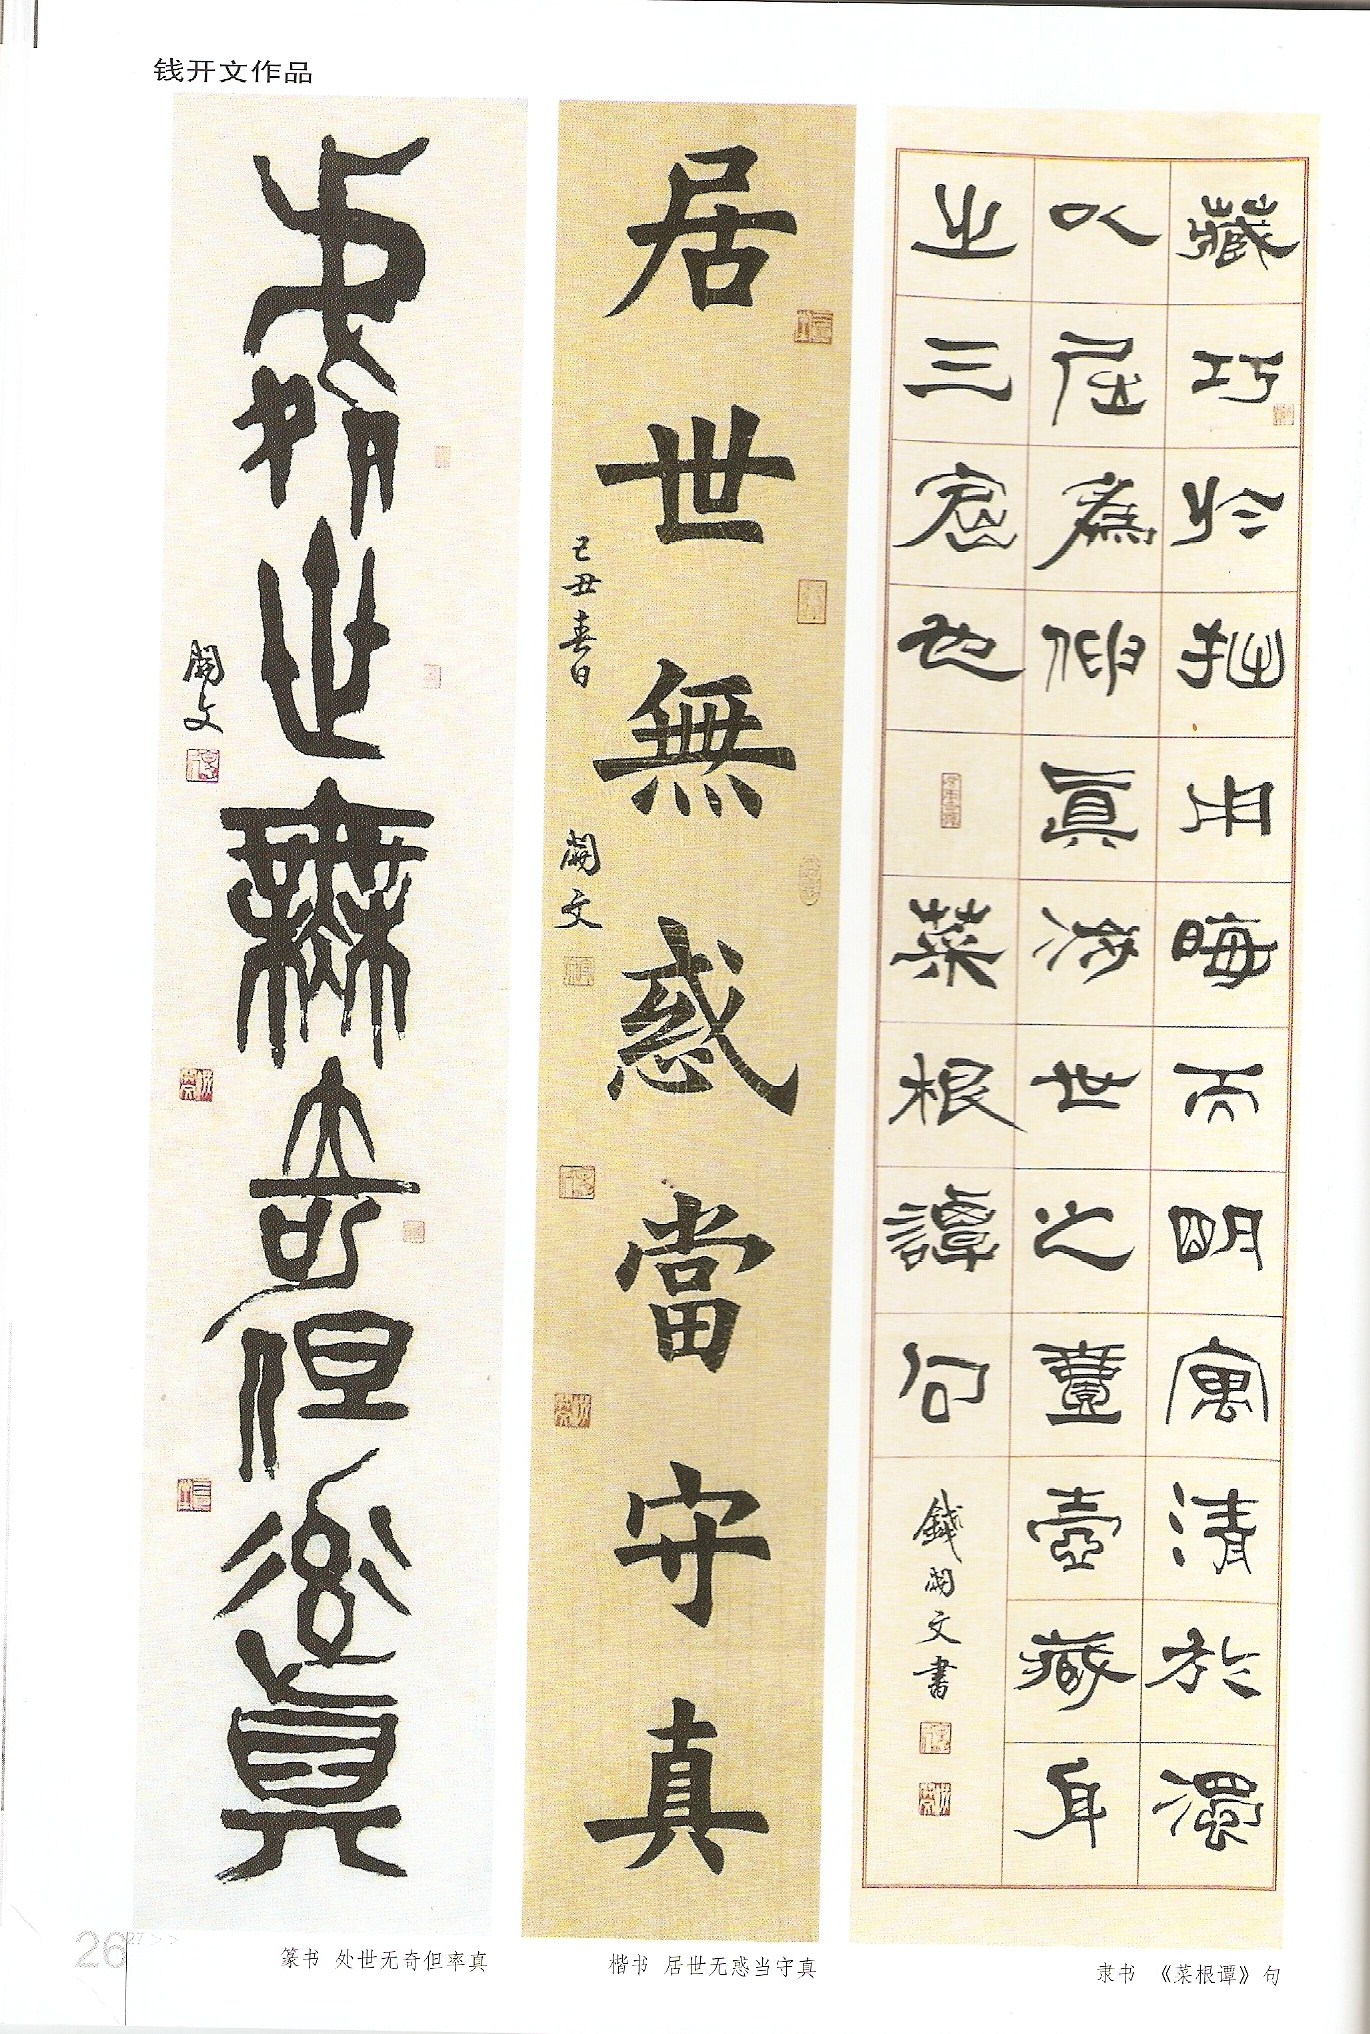 钱开文作品
處世無奇但率真
開文
居世無惑當守真
己丑春日 開文
藏巧於拙用晦而明寓清於濁
以屈為伸真涉世之壹壺藏身
之三窟也 菜根譚句 錢開文書
篆书 处世无奇但率真
楷书 居世无惑当守真
隶书 《菜根谭》句
26
27>>